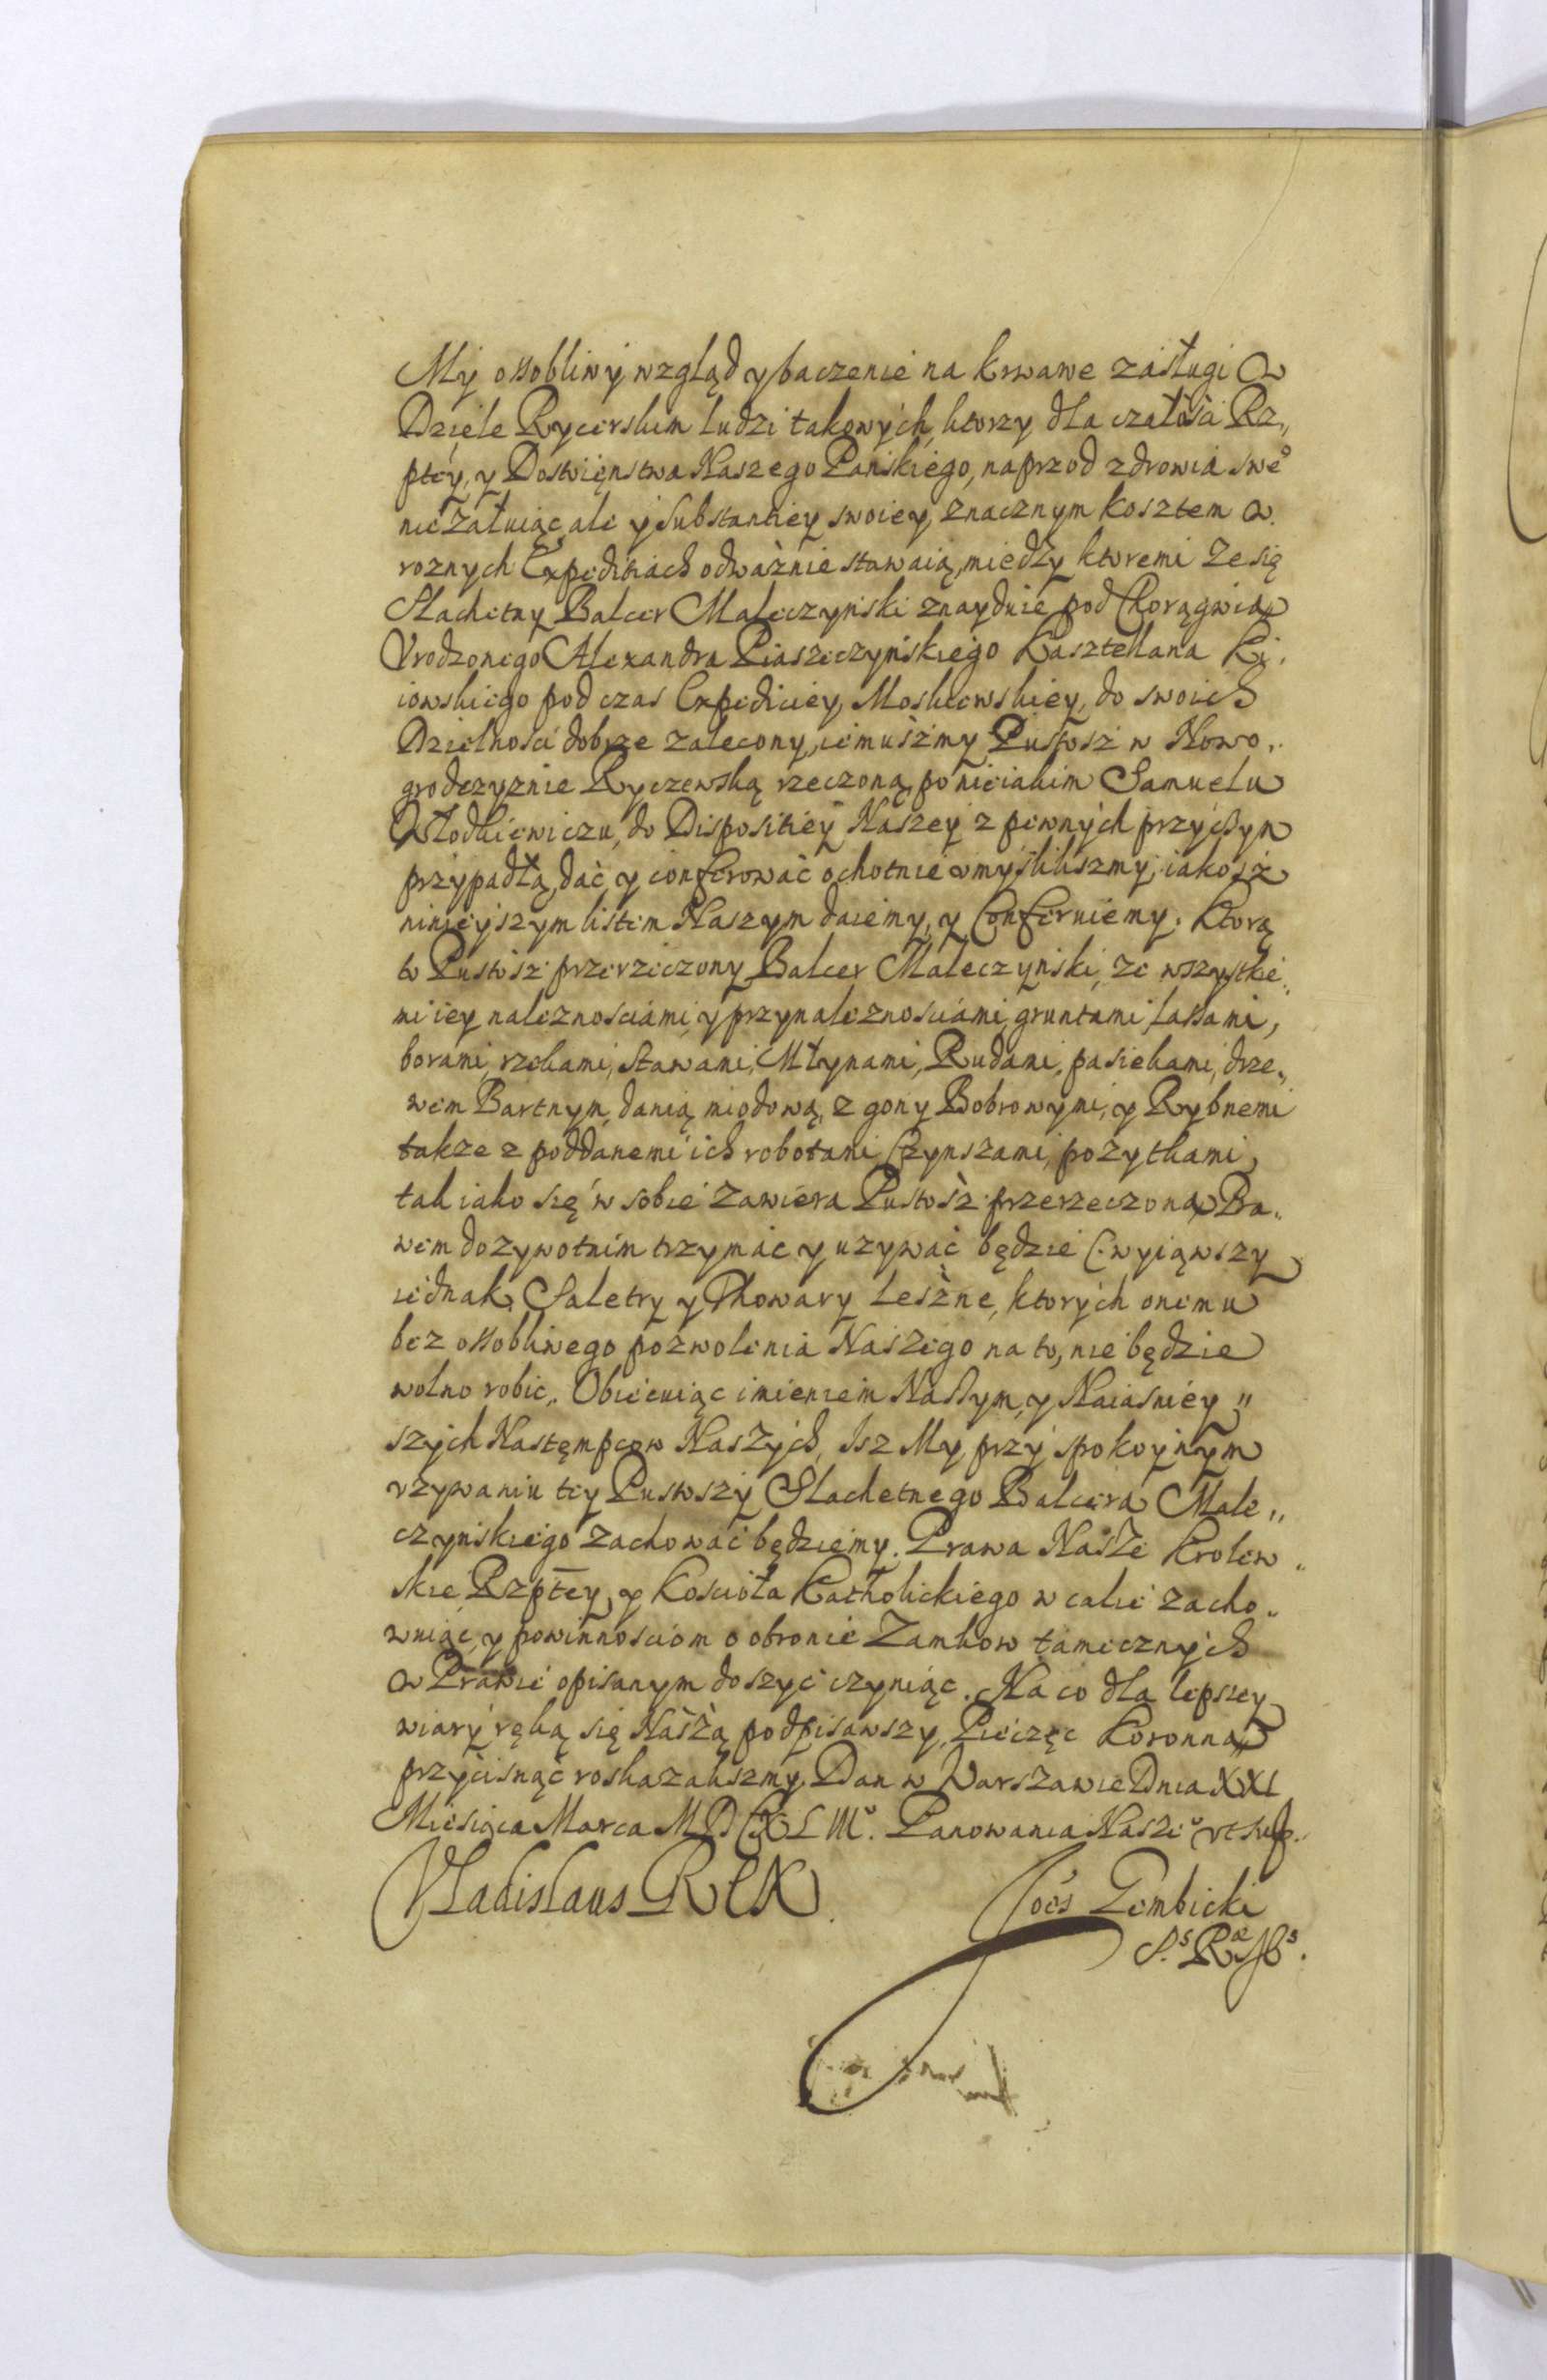 My ossobliwy wzgląd y baczenie na krwawe zasługi w
Dziele Rycerskim ludzi takowych, ktorzy dla czałosci Rz„
ptey, y Dostoięnstwa Naszego Pańskiego, naprzod zdrowia sweº
nie żałuiąc, ale y substantiey swoiey, znacznym kosztem w
roznych Expeditiach odważnie stawaią, miedzy ktoremi ze się
Slachetny Balcer Maleczyński znayduie pod Chorągwią
Vrodzonego Alexandra Piaseczyńskiego Kasztellana Ki„
iowskiego pod czas Expediciey Moskiewskiey, do swoich
Dzielnosci dobrze zalecony, iemusmy Pustosz w Nowo„
grodczyznie Ryczewską rzeczoną, po nieiakim Samuelu
Włodkiewiczu, do Dispositiey Naszey z pewnych przyczyn
przypadłą, dać, y conferować ochotnie vmyslilismy, iakosz
ninieyszym listem Naszym daiemy, y Conferuiemy. Ktorą
to Pustosz przerzeczony Balcer Maleczyński, ze wszystkie„
mi iey naleznosciami, y przynaleznosciami, gruntami, lassami,
borami, rzekami, stawami, Młynami, Rudami, pasiekami, drze„
wem Bartnym, danią miodową, z gony Bobrowymi, y Rybnemi
takze z poddanemi ich robotami, Czynszami, pozytkami,
tak iako się w sobie zawiera Pustosz przerzeczona, Pra„
wem dozywotnim trzymać y uzywać będzie (wyiąwszy
iednak Saletry y Thowary Leśne, ktorych onemu
bez ossobliwego pozwolenia Naszego na to, nie będzie
wolno robic„ Obiecuiąc imieniem Nassym, y Naiasniey„
szych Nastęmpcow Naszych, Isz My przy spokoynym
vzywaniu tey Pustoszy Slachetnego Balcera Male„
czyńskiego zachować będziemy. Prawa Nasze Krolew„
skie, Rzptey, y Kosciola Katholickiego w cale zacho„
wuiąc, y powinnosciom o obronie Zamkow tamecznych
w Prawie opisanym dosyc czyniąc. Na co dla lepszey
wiary ręką się Naszą podpisawszy, Pieczęc Koronną
przycisnąć roskazalismy. Dan w Warszawie Dnia XXI
Miesiąca Marca Panowania Nasze⁰ vt supr.
Vladislaus REX
Joēs Gembicki
S.ˢ R.æ Mtˢ.